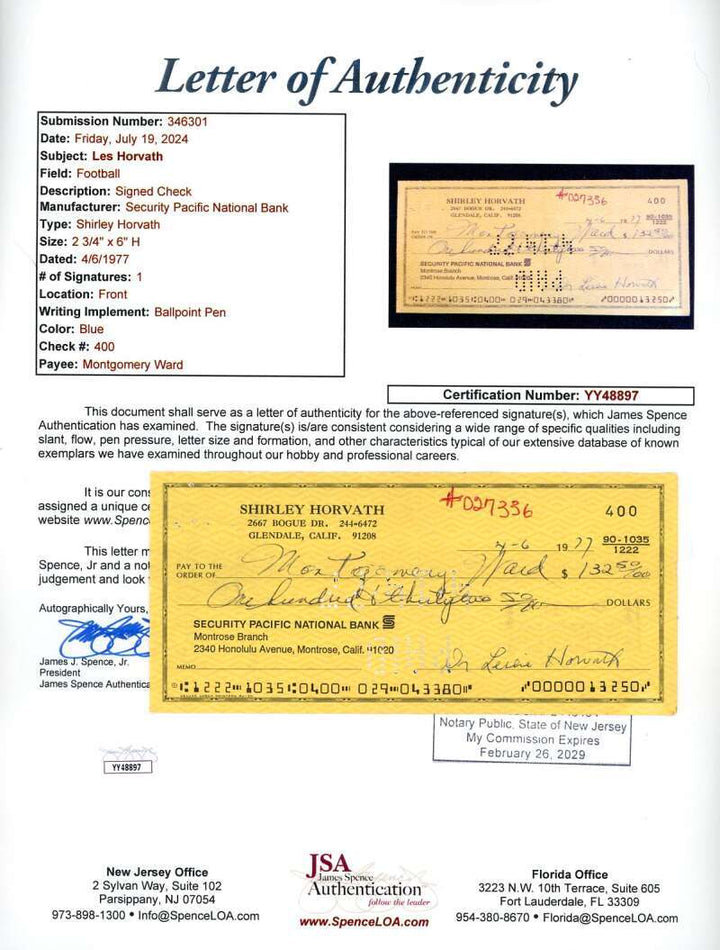 Letter of Authenticity
Submission Number: 346301
Date: Friday, July 19, 2024
Subject: Les Horvath
Field: Football
Description: Signed Check
Manufacturer: Security Pacific National Bank
Type: Shirley Horvath
Size: 2 3/4" x 6" H
Dated: 4/6/1977
# of Signatures: 1
Location: Front
Writing Implement: Ballpoint Pen
Color: Blue
Check #: 400
Payee: Montgomery Ward
SHIRLEY HORVATH
2667 BOGUE DR. 244-6472
GLENDALE, CALIF. 91208
#027336
400
4-6 1977
90-1035
1222
PAY TO THE
ORDER OF Montgomery Ward $ 132 50/00
One hundred thirty two 50/00 DOLLARS
SECURITY PACIFIC NATIONAL BANK
Montrose Branch
2340 Honolulu Avenue, Montrose, Calif.
Dr Leslie Horvath
⑆1222⑉1035⑆0400⑉ 029⑉043380⑈ ⑈0000013250⑈
Certification Number: YY48897
This document shall serve as a letter of authenticity for the above-referenced signature(s), which James Spence
Authentication has examined. The signature(s) is/are consistent considering a wide range of specific qualities including
slant, flow, pen pressure, letter size and formation, and other characteristics typical of our extensive database of known
exemplars we have examined throughout our hobby and professional careers.
It is our cons
assigned a unique ce
website www.Spenc
This letter m
Spence, Jr and a no
judgement and look
Autographically Yours,
James J. Spence, Jr.
President
James Spence Authentica
SHIRLEY HORVATH
2667 BOGUE DR. 244-6472
GLENDALE, CALIF. 91208
#027336
400
4-6 1977
90-1035
1222
PAY TO THE
ORDER OF Montgomery Ward $ 132 50/00
One hundred & thirty two 50/00 DOLLARS
SECURITY PACIFIC NATIONAL BANK
Montrose Branch
2340 Honolulu Avenue, Montrose, Calif. 91020
MEMO
Dr Leslie Horvath
⑆1222⑉1035⑆0400⑉ 029⑉043380⑈ ⑈0000013250⑈
Notary Public, State of New Jersey
My Commission Expires
February 26, 2029
YY48897
New Jersey Office
2 Sylvan Way, Suite 102
Parsippany, NJ 07054
973-898-1300 • Info@SpenceLOA.com
JSA
James Spence
Authentication
follow the leader
www.SpenceLOA.com
Florida Office
3223 N.W. 10th Terrace, Suite 605
Fort Lauderdale, FL 33309
954-380-8670 • Florida@SpenceLOA.com